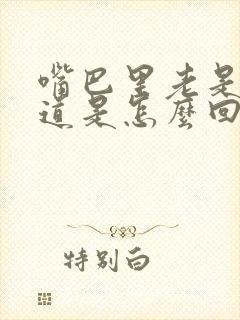 嘴巴里老是
道是怎麽回
特别白